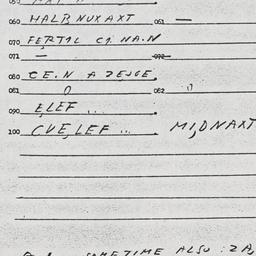 060 HALB NUX AXT 061 —
070 FERTIL CI NA.N
071 — 072
080 CE.N A ZEJGE.
081 0 082 "
090 E,LEF ...
100 CVE,LEF ... MI,DNAXT
SOMETIME ALSO : ZA,